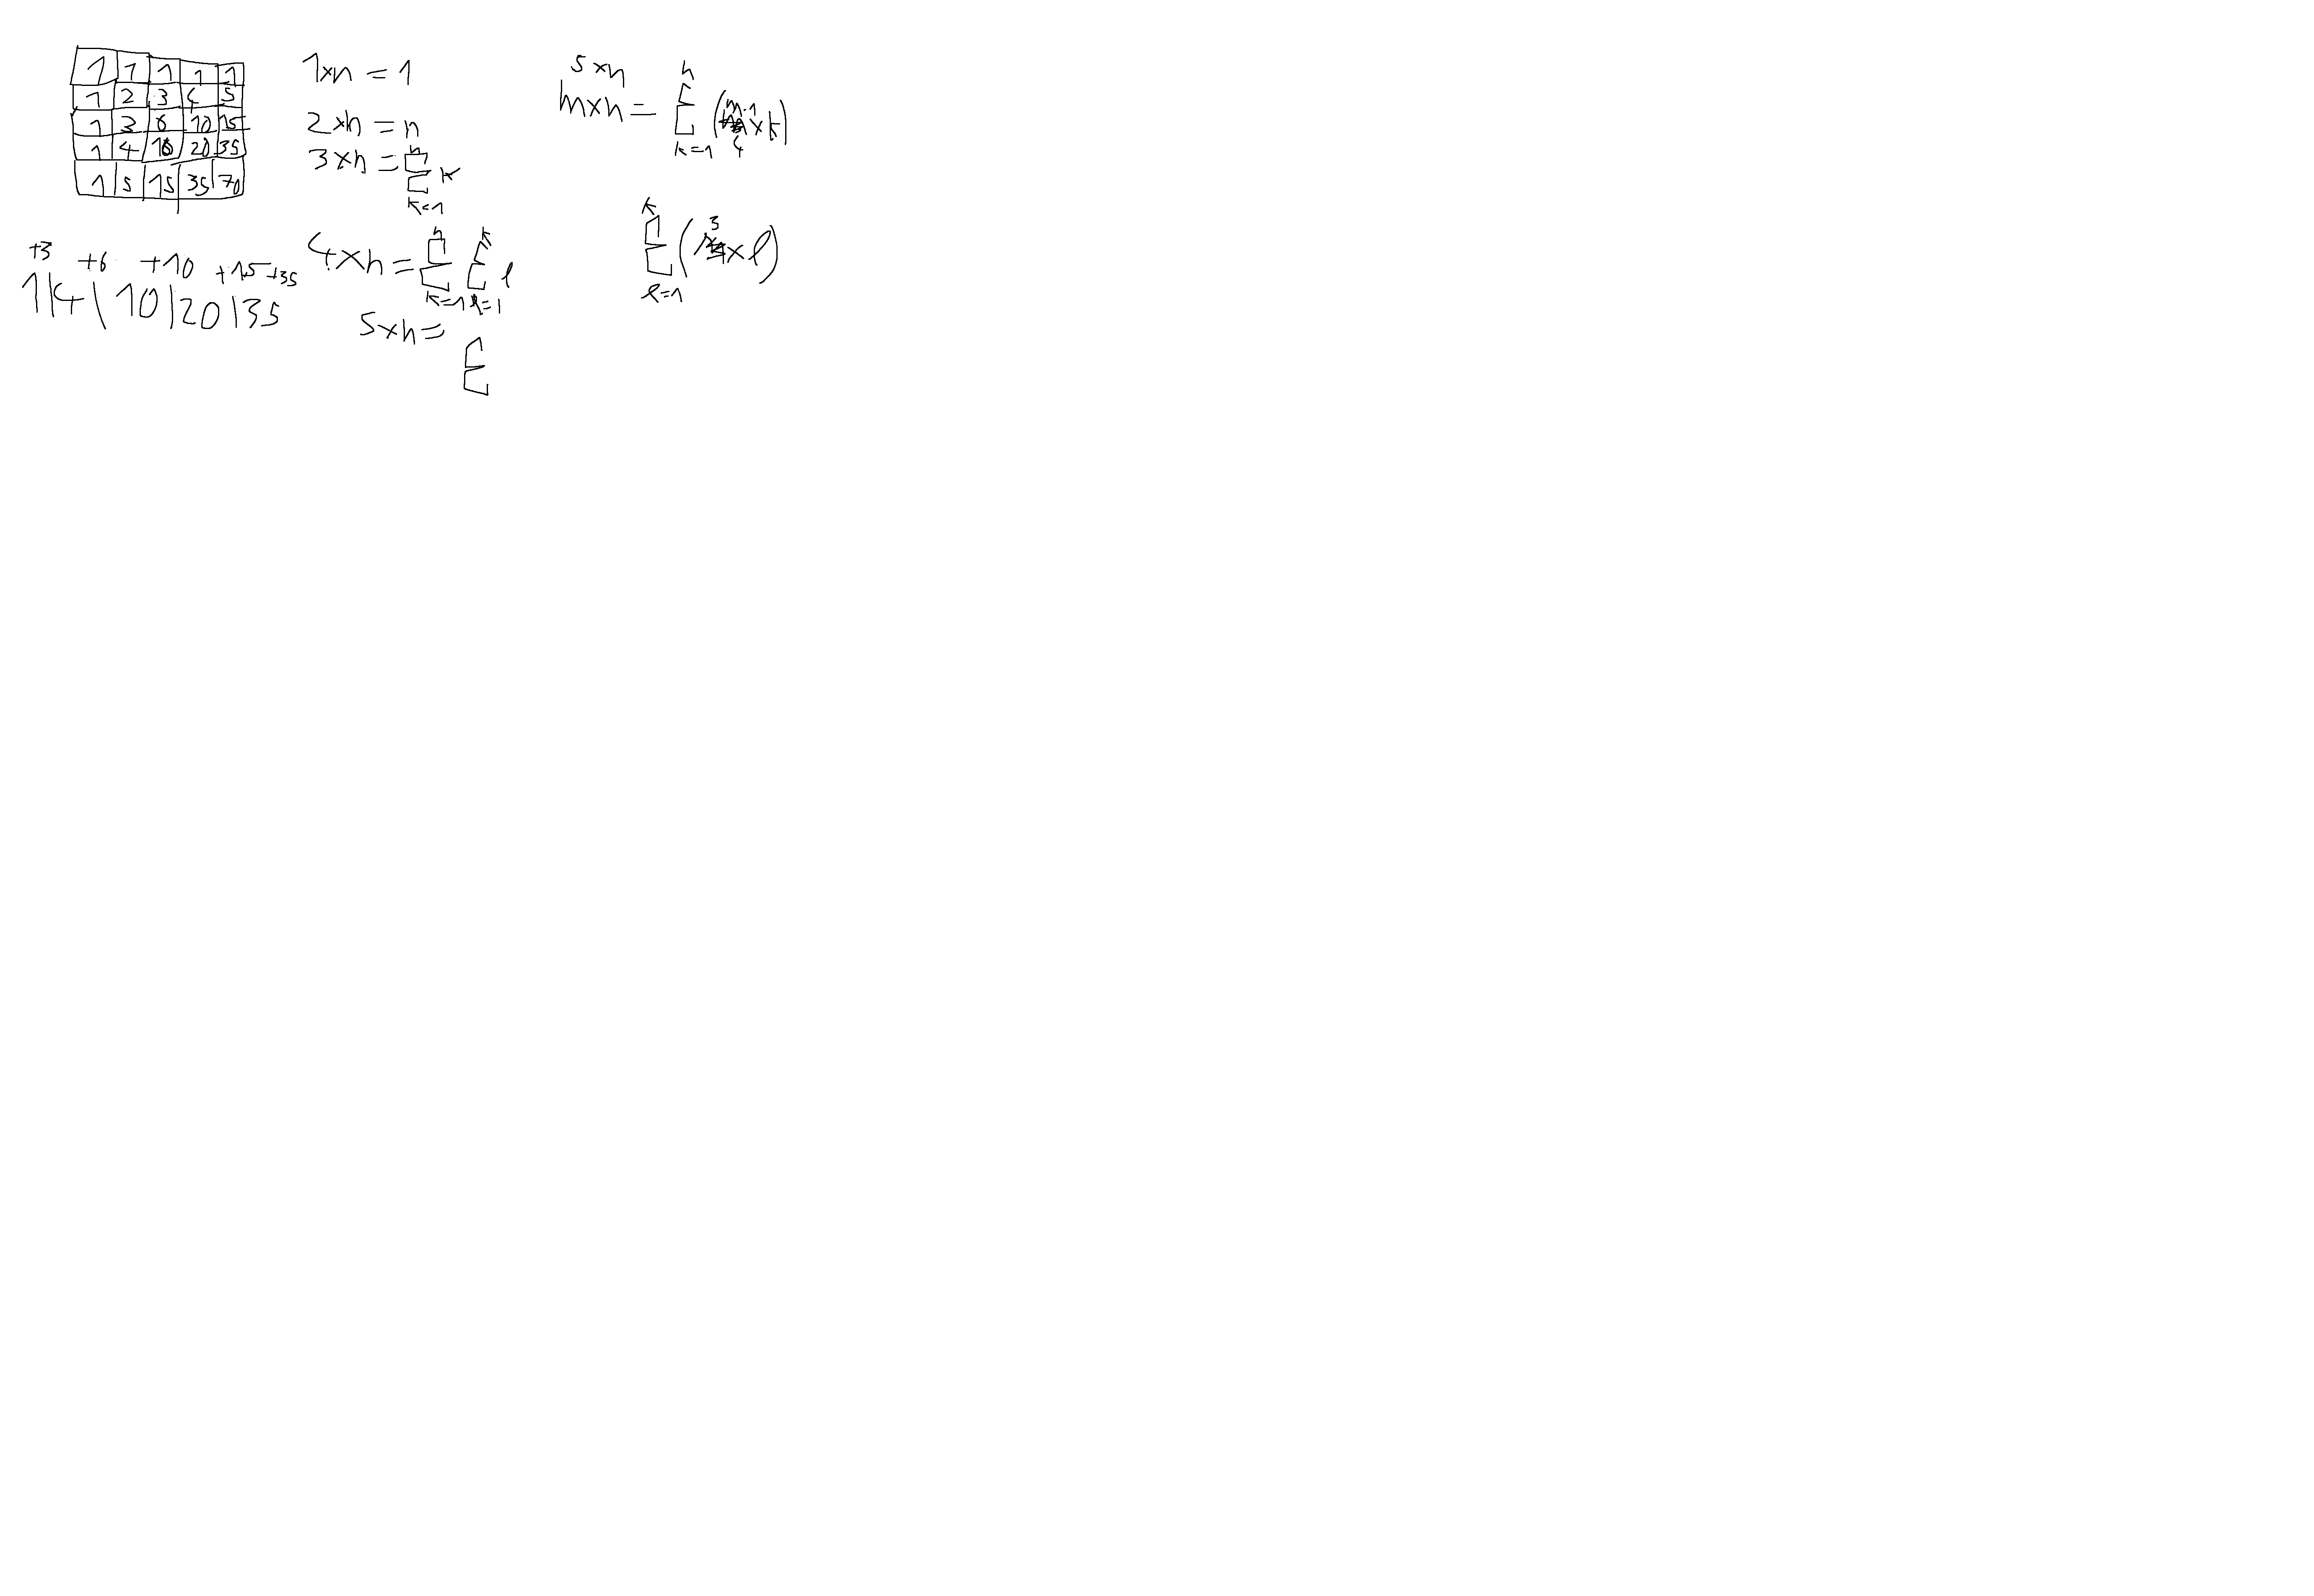 1 1 1 1 1
1 2 3 4 5
1 3 6 10 15
1 4 10 20 35
1 5 15 35 70
+3 +6 +10 +15 +35
1|4|10|20|35
1×n = 1
2×n = n
3×n = n Σ k=1 k
4×n = n Σ k=1 k Σ l=1 l
5×n =
Σ
5×n
m×n = n Σ k=1 (m-1 × k)
4
k Σ l=1 (3×l)